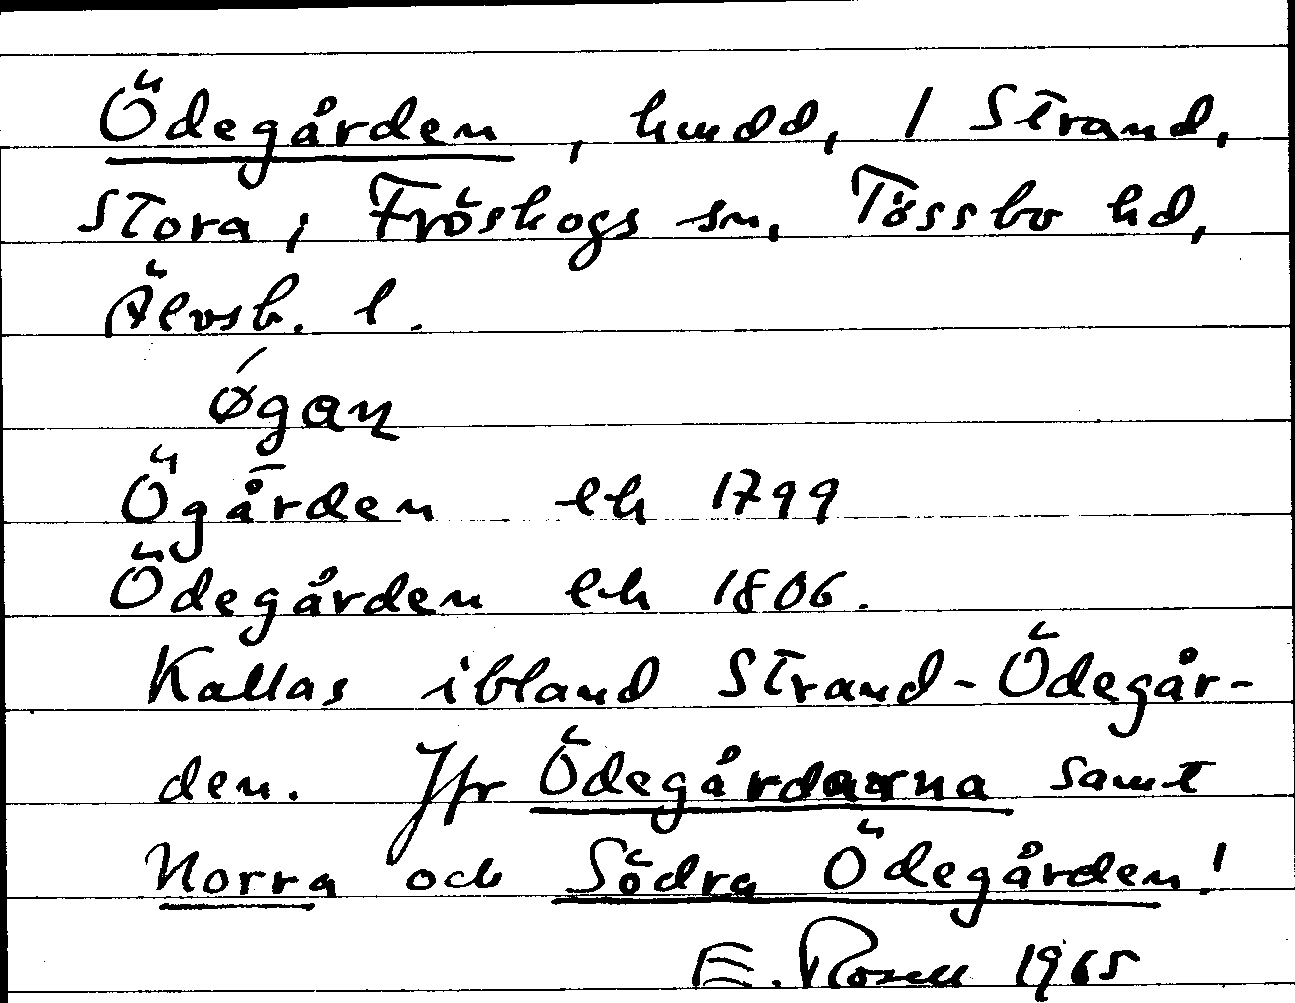 Ödegården, hmdd, / Strand,
Stora, i Fröskogs sn, Tössbo hd,
Älvsb. l.
Ögården lh 1799
Ödegården lh 1806.
Kallas ibland Strand-Ödegår-
den. Jfr Ödegårdarna samt
Norra och Södra Ödegården!
E. Rosell 1965